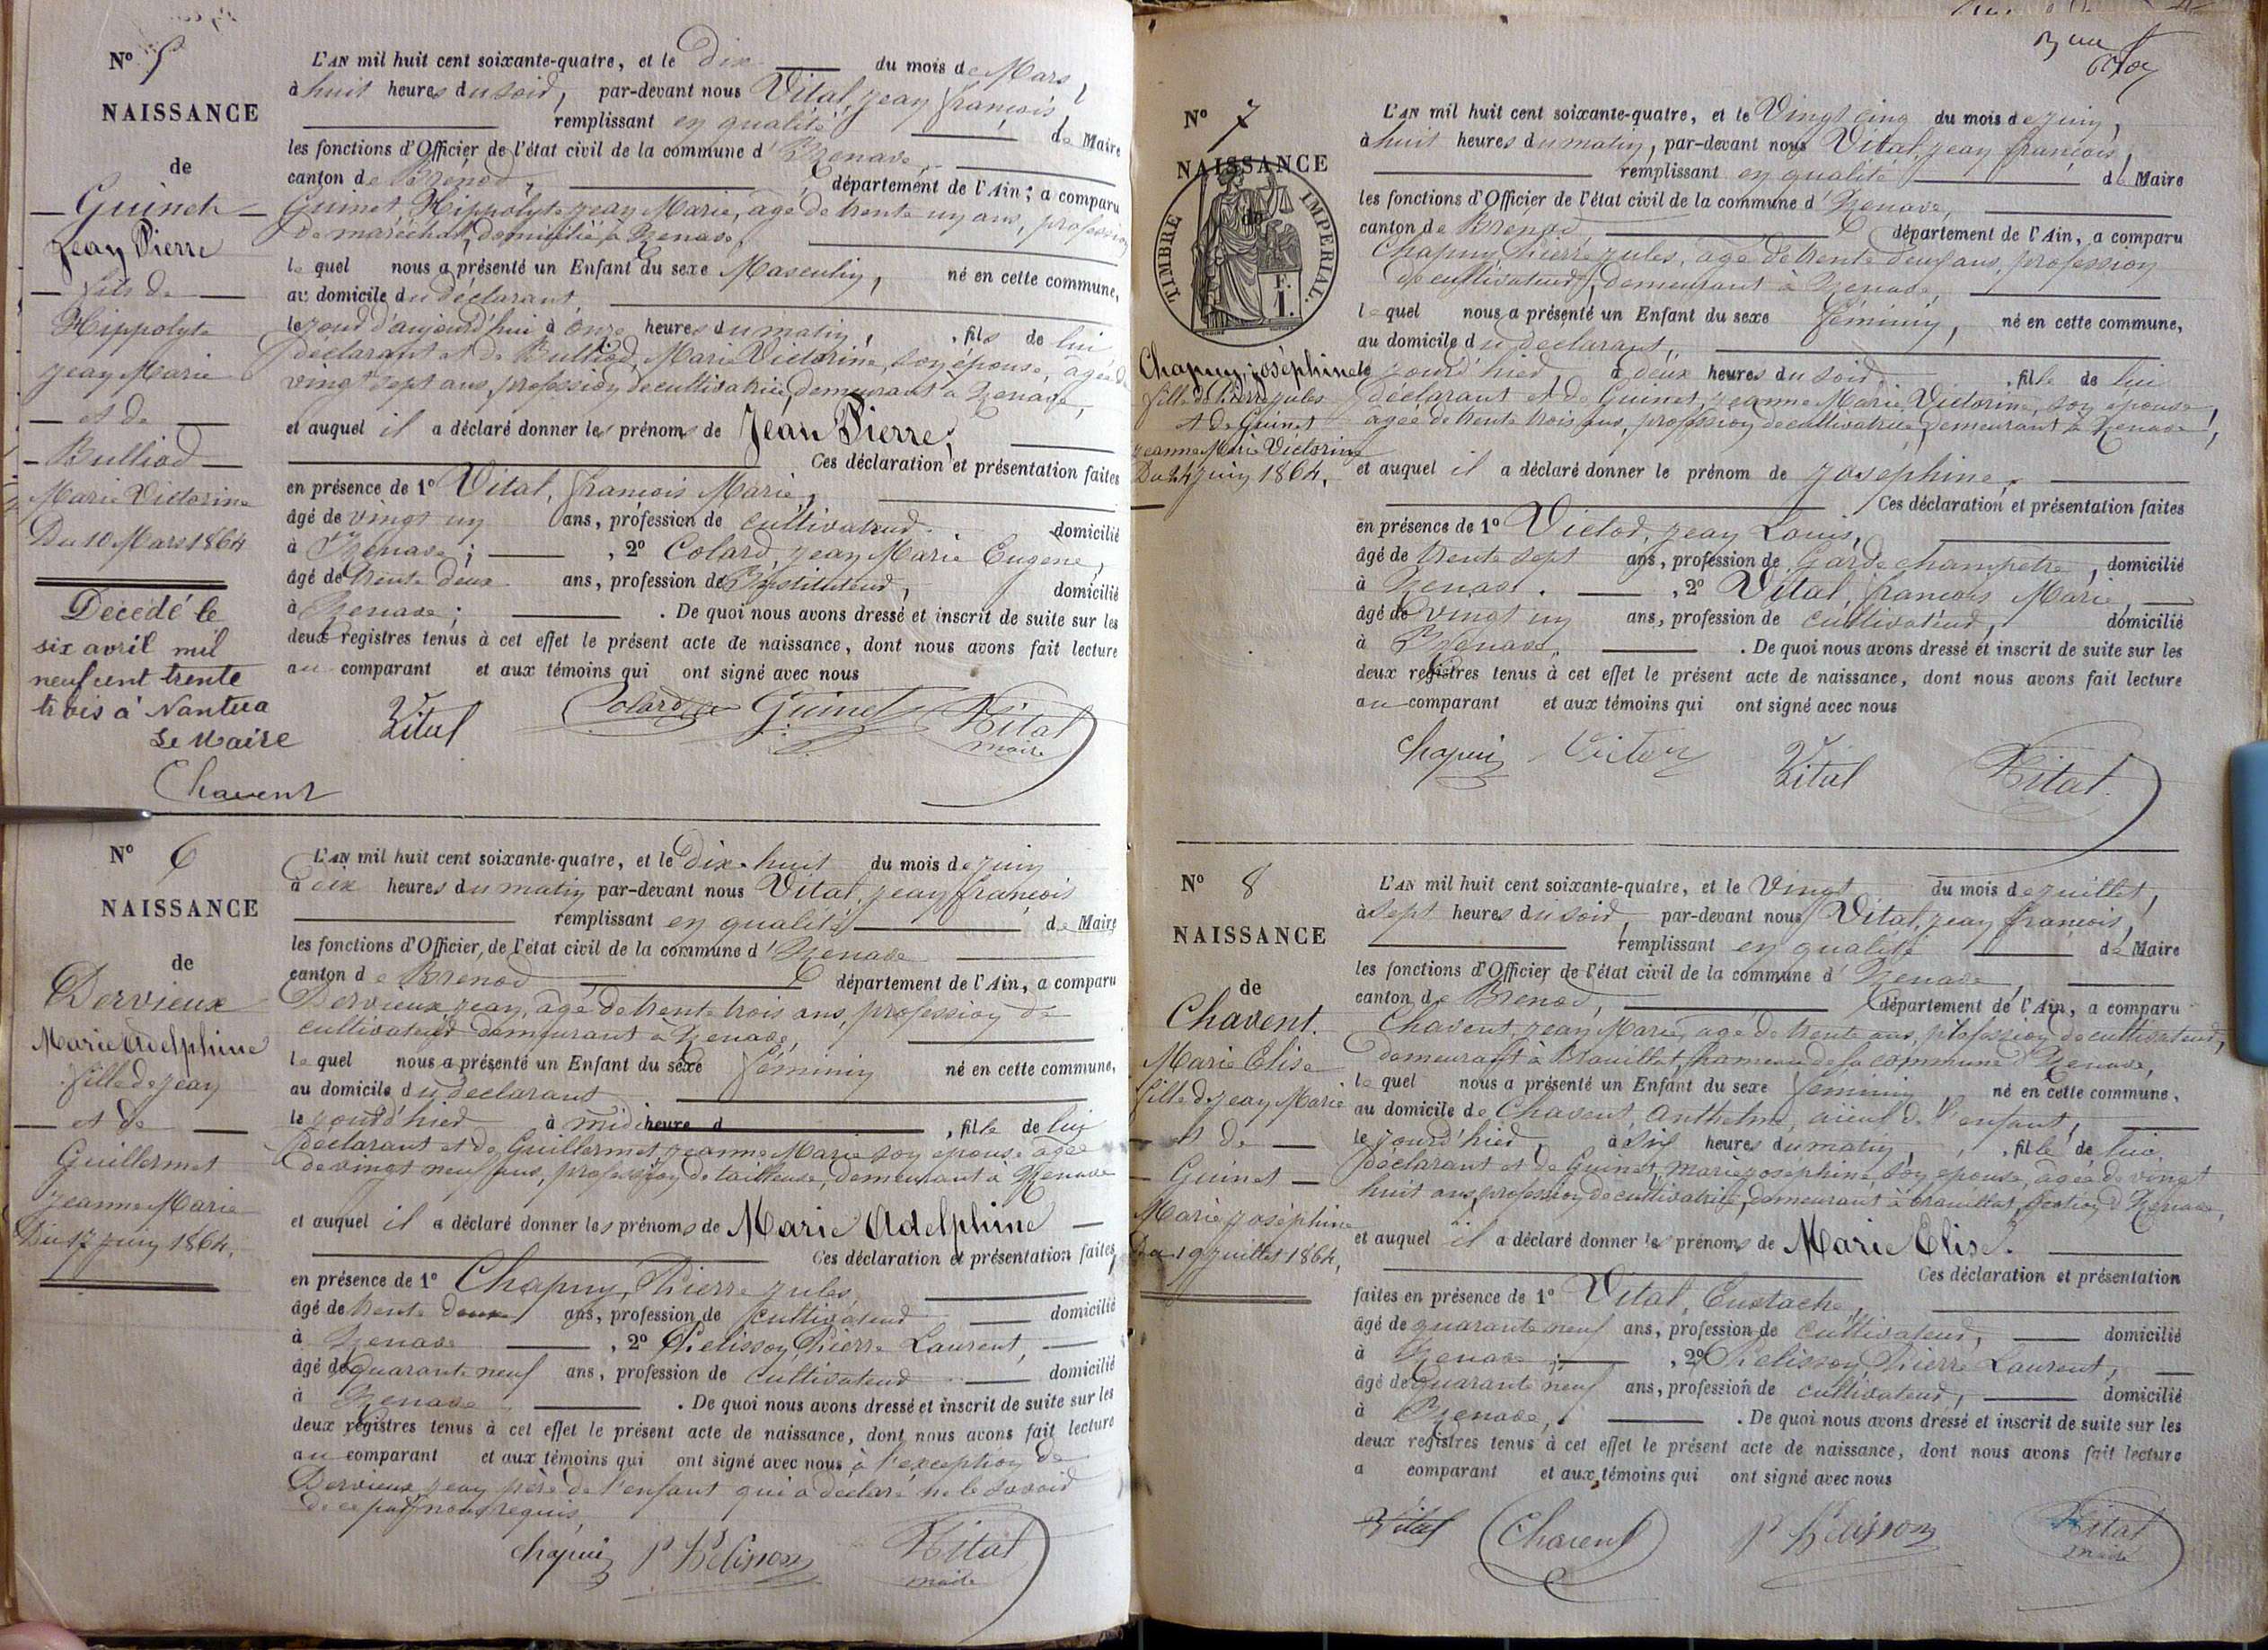 N° 5
NAISSANCE
de
Guinet
Jean Pierre
fils de
Hippolyte
Jean Marie
et de
Bulliod
Marie Victorine
Du 10 Mars 1864
Décédé le
six avril mil
neuf cent trente
trois à Nantua
Le Maire
Chavent
L'AN mil huit cent soixante-quatre, et le dix du mois de Mars
à huit heures du soir, par-devant nous Vital, Jean françois
remplissant en qualité de Maire
les fonctions d'Officier de l'état civil de la commune d'Izenave,
canton de Brénod, département de l'Ain; a comparu
Guinet, Hippolyte Jean Marie, agé de trente un ans, profession
de maréchal, domicilié à Izenave,
le quel nous a présenté un Enfant du sexe Masculin, né en cette commune,
au domicile du déclarant,
le jour d'aujourd'hui à onze heures du matin, fils de lui
déclarant et de Bulliod, Marie Victorine, son épouse, agée de
vingt sept ans, profession de cultivatrice, demeurant à Izenave,
et auquel il a déclaré donner les prénoms de Jean Pierre,
Ces déclaration et présentation faites
en présence de 1° Vital, françois Marie,
âgé de vingt un ans, profession de cultivateur. domicilié
à Izenave; , 2° Colard, Jean Marie Eugene,
âgé de trente deux ans, profession de Instituteur, domicilié
à Izenave; . De quoi nous avons dressé et inscrit de suite sur les
deux registres tenus à cet effet le présent acte de naissance, dont nous avons fait lecture
au comparant et aux témoins qui ont signé avec nous
Vital Colard Guinet Vital
maire
N° 6
NAISSANCE
de
Dervieux
Marie Adelphine
fille de Jean
et de
Guillermet
Jeanne Marie
Du 17 Juin 1864.
L'AN mil huit cent soixante-quatre, et le dix-huit du mois de Juin
à dix heures du matin par-devant nous Vital, Jean françois
remplissant en qualité de Maire
les fonctions d'Officier, de l'état civil de la commune d'Izenave
canton de Brenod département de l'Ain, a comparu
Dervieux, Jean, agé de trente trois ans, profession de
cultivateur demeurant à Izenave,
le quel nous a présenté un Enfant du sexe féminin né en cette commune,
au domicile du déclarant
le jour d'hier à midi heure d , fille de lui
déclarant et de Guillermet, Jeanne Marie son épouse agée
de vingt neuf ans, profession de tailleuse, demeurant à Izenave
et auquel il a déclaré donner les prénoms de Marie Adelphine
Ces déclaration et présentation faites
en présence de 1° Chapuy, Pierre Jules,
âgé de trente deux ans, profession de cultivateur domicilié
à Izenave , 2° Pelisson, Pierre Laurent,
âgé de quarante neuf ans, profession de cultivateur domicilié
à Izenave . De quoi nous avons dressé et inscrit de suite sur les
deux registres tenus à cet effet le présent acte de naissance, dont nous avons fait lecture
au comparant et aux témoins qui ont signé avec nous à l'exception de
Dervieux Jean père de l'enfant qui a déclaré ne le savoir
de ce par nous requis,
Chapuis P Pelisson Vital
maire
N° 7
NAISSANCE
de
TIMBRE IMPERIAL.
F.
1.
Chapuy, Joséphine
fille de Pierre Jules
et de Guinet
Jeanne Marie Victorine
Du 24 Juin 1864.
L'AN mil huit cent soixante-quatre, et le Vingt cinq du mois de Juin,
à huit heures du matin, par-devant nous Vital, Jean françois,
remplissant en qualité de Maire
les fonctions d'Officier de l'état civil de la commune d'Izenave,
canton de Brénod, département de l'Ain, a comparu
Chapuy, Pierre Jules, agé de trente deux ans, profession
de cultivateur, demeurant à Izenave,
le quel nous a présenté un Enfant du sexe féminin, né en cette commune,
au domicile du déclarant,
le jour d'hier, à deux heures du soir , fille de lui
déclarant et de Guinet, Jeanne Marie Victorine, son épouse,
agée de trente trois ans, profession de cultivatrice, demeurant à Izenave,
et auquel il a déclaré donner le prénom de Josephine.
Ces déclaration et présentation faites
en présence de 1° Victor, Jean Louis,
âgé de trente sept ans, profession de Garde champetre, domicilié
à Izenave. , 2° Vital, françois Marie,
âgé de vingt un ans, profession de cultivateur, domicilié
à Izenave, . De quoi nous avons dressé et inscrit de suite sur les
deux registres tenus à cet effet le présent acte de naissance, dont nous avons fait lecture
au comparant et aux témoins qui ont signé avec nous
Chapuis Victor Vital Vital
N° 8
NAISSANCE
de
Chavent.
Marie Elise
fille de Jean Marie
et de
Guinet
Marie Joséphine
Du 19 Juillet 1864,
L'AN mil huit cent soixante-quatre, et le Vingt du mois de Juillet,
à sept heures du soir, par-devant nous Vital, Jean françois,
remplissant en qualité de Maire
les fonctions d'Officier de l'état civil de la commune d'Izenave
canton de Brenod, département de l'Ain, a comparu
Chavent, Jean Marie, agé de trente ans, profession de cultivateur,
demeurant à Braillat, hameau de la commune d'Izenave,
le quel nous a présenté un Enfant du sexe féminin né en cette commune,
au domicile de Chavent, Anthelme, aïeul de l'enfant,
le jour d'hier, à six heures du matin, , fille de lui,
déclarant et de Guinet, Marie Josephine, son épouse, agée de vingt
huit ans, profession de cultivatrice, demeurant à Braillat, section d'Izenave,
et auquel il a déclaré donner les prénoms de Marie Elise.
Ces déclaration et présentation
faites en présence de 1° Vital, Eustache,
âgé de quarante neuf ans, profession de cultivateur, domicilié
à Izenave; , 2° Pelisson, Pierre Laurent,
âgé de quarante neuf ans, profession de cultivateur, domicilié
à Izenave, . De quoi nous avons dressé et inscrit de suite sur les
deux registres tenus à cet effet le présent acte de naissance, dont nous avons fait lecture
a comparant et aux témoins qui ont signé avec nous
Vital Chavent P Pelisson Vital
maire